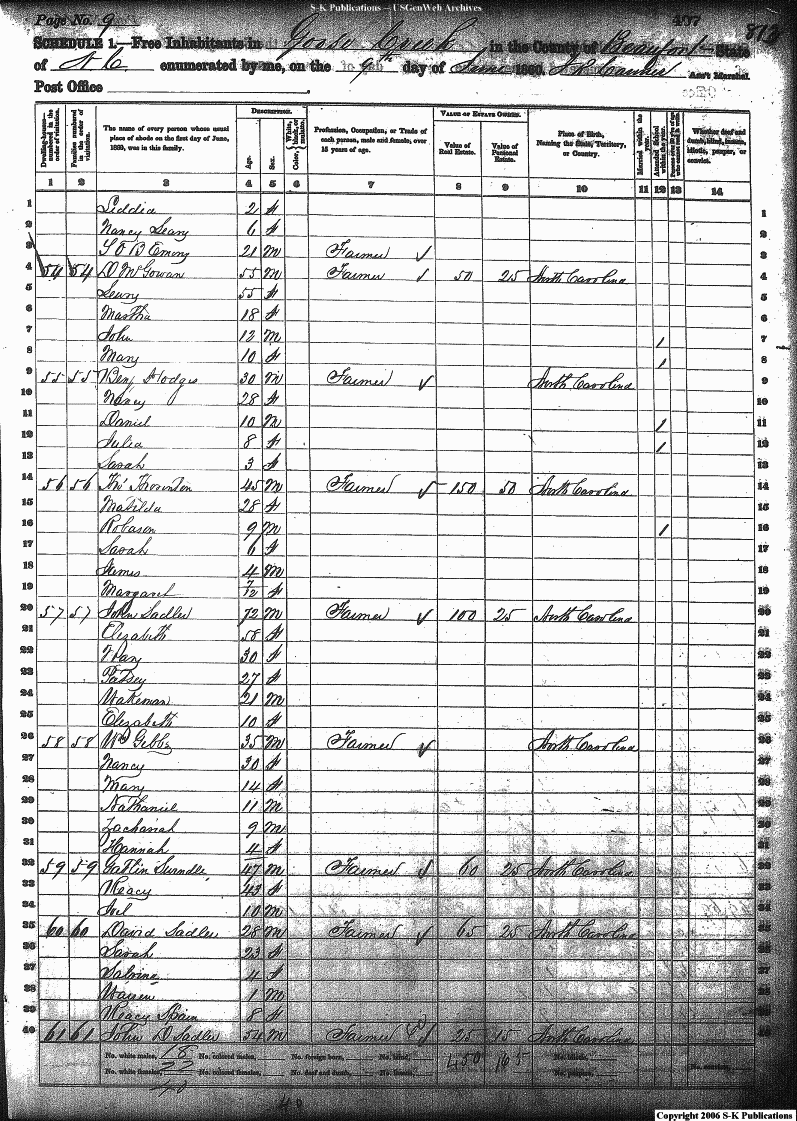 S-K Publications – USGenWeb Archives
Page No. 9
813
SCHEDULE 1.—Free Inhabitants in Goose Creek in the County of Beaufort State
of N C enumerated by me, on the 9th day of June 1860. Ass't Marshal.
Post Office
DESCRIPTION. VALUE OF ESTATE OWNED.
Dwelling-houses—numbered in the order of visitation.
Families numbered in the order of visitation.
The name of every person whose usual place of abode on the first day of June, 1860, was in this family.
Age.
Sex.
Color, White, black, or mulatto.
Profession, Occupation, or Trade of each person, male and female, over 15 years of age.
Value of Real Estate.
Value of Personal Estate.
Place of Birth, Naming the State, Territory, or Country.
Married within the year.
Attended School within the year.
Whether deaf and dumb, blind, insane, idiotic, pauper, or convict.
1 2 3 4 5 6 7 8 9 10 11 12 13 14
1 Liddia 2 f 1
2 Nancy Leary 6 f 2
3 Emory 21 m Farmer 3
4 54 54 D McGowan 55 m Farmer 50 25 North Carolina 4
5 55 f 5
6 Martha 18 f 6
7 John 12 m / 7
8 Mary 10 f / 8
9 55 55 Benj Hodges 30 m Farmer North Carolina 9
10 Nancy 28 f 10
11 Daniel 10 m / 11
12 Julia 8 f / 12
13 Sarah 3 f 13
14 56 56 45 m Farmer 150 50 North Carolina 14
15 Matilda 28 f 15
16 Robason 9 m / 16
17 Sarah 6 f 17
18 James 4 m 18
19 Margaret 7/12 f 19
20 57 57 John Sadler 72 m Farmer 100 25 North Carolina 20
21 Elizabeth 58 f 21
22 30 f 22
23 Patsey 27 f 23
24 Wakeman 21 m 24
25 Elizabeth 10 f 25
26 58 58 Wm Gibbs 35 m Farmer North Carolina 26
27 Nancy 30 f 27
28 Mary 14 f 28
29 Nathaniel 11 m 29
30 Zachariah 9 m 30
31 Hannah 4 f 31
32 59 59 Gatlin 47 m Farmer 60 25 North Carolina 32
33 Neacy 43 f 33
34 Joel 10 m 34
35 60 60 David Sadler 28 m Farmer 65 25 North Carolina 35
36 Sarah 23 f 36
37 Sabrina 4 f 37
38 Warren 1 m 38
39 Neacy Spain 8 f 39
40 61 61 John D Sadler 54 m Farmer 25 15 North Carolina 40
No. white males, 18 No. colored males, No. foreign born, No. blind, 450 165
No. white females, 22 No. colored females, No. deaf and dumb,
40
40
Copyright 2006 S-K Publications